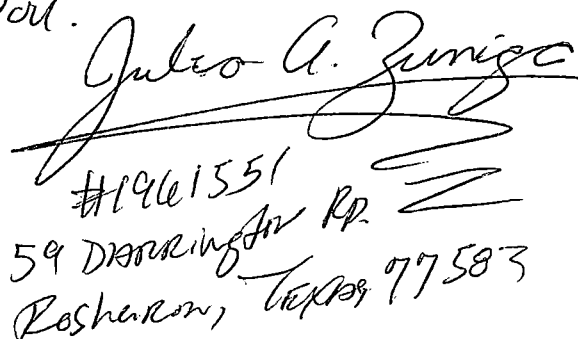 Julio A. Zuniga
#1961551
59 DARRington RD.
Rosharon, TEXAS 77583